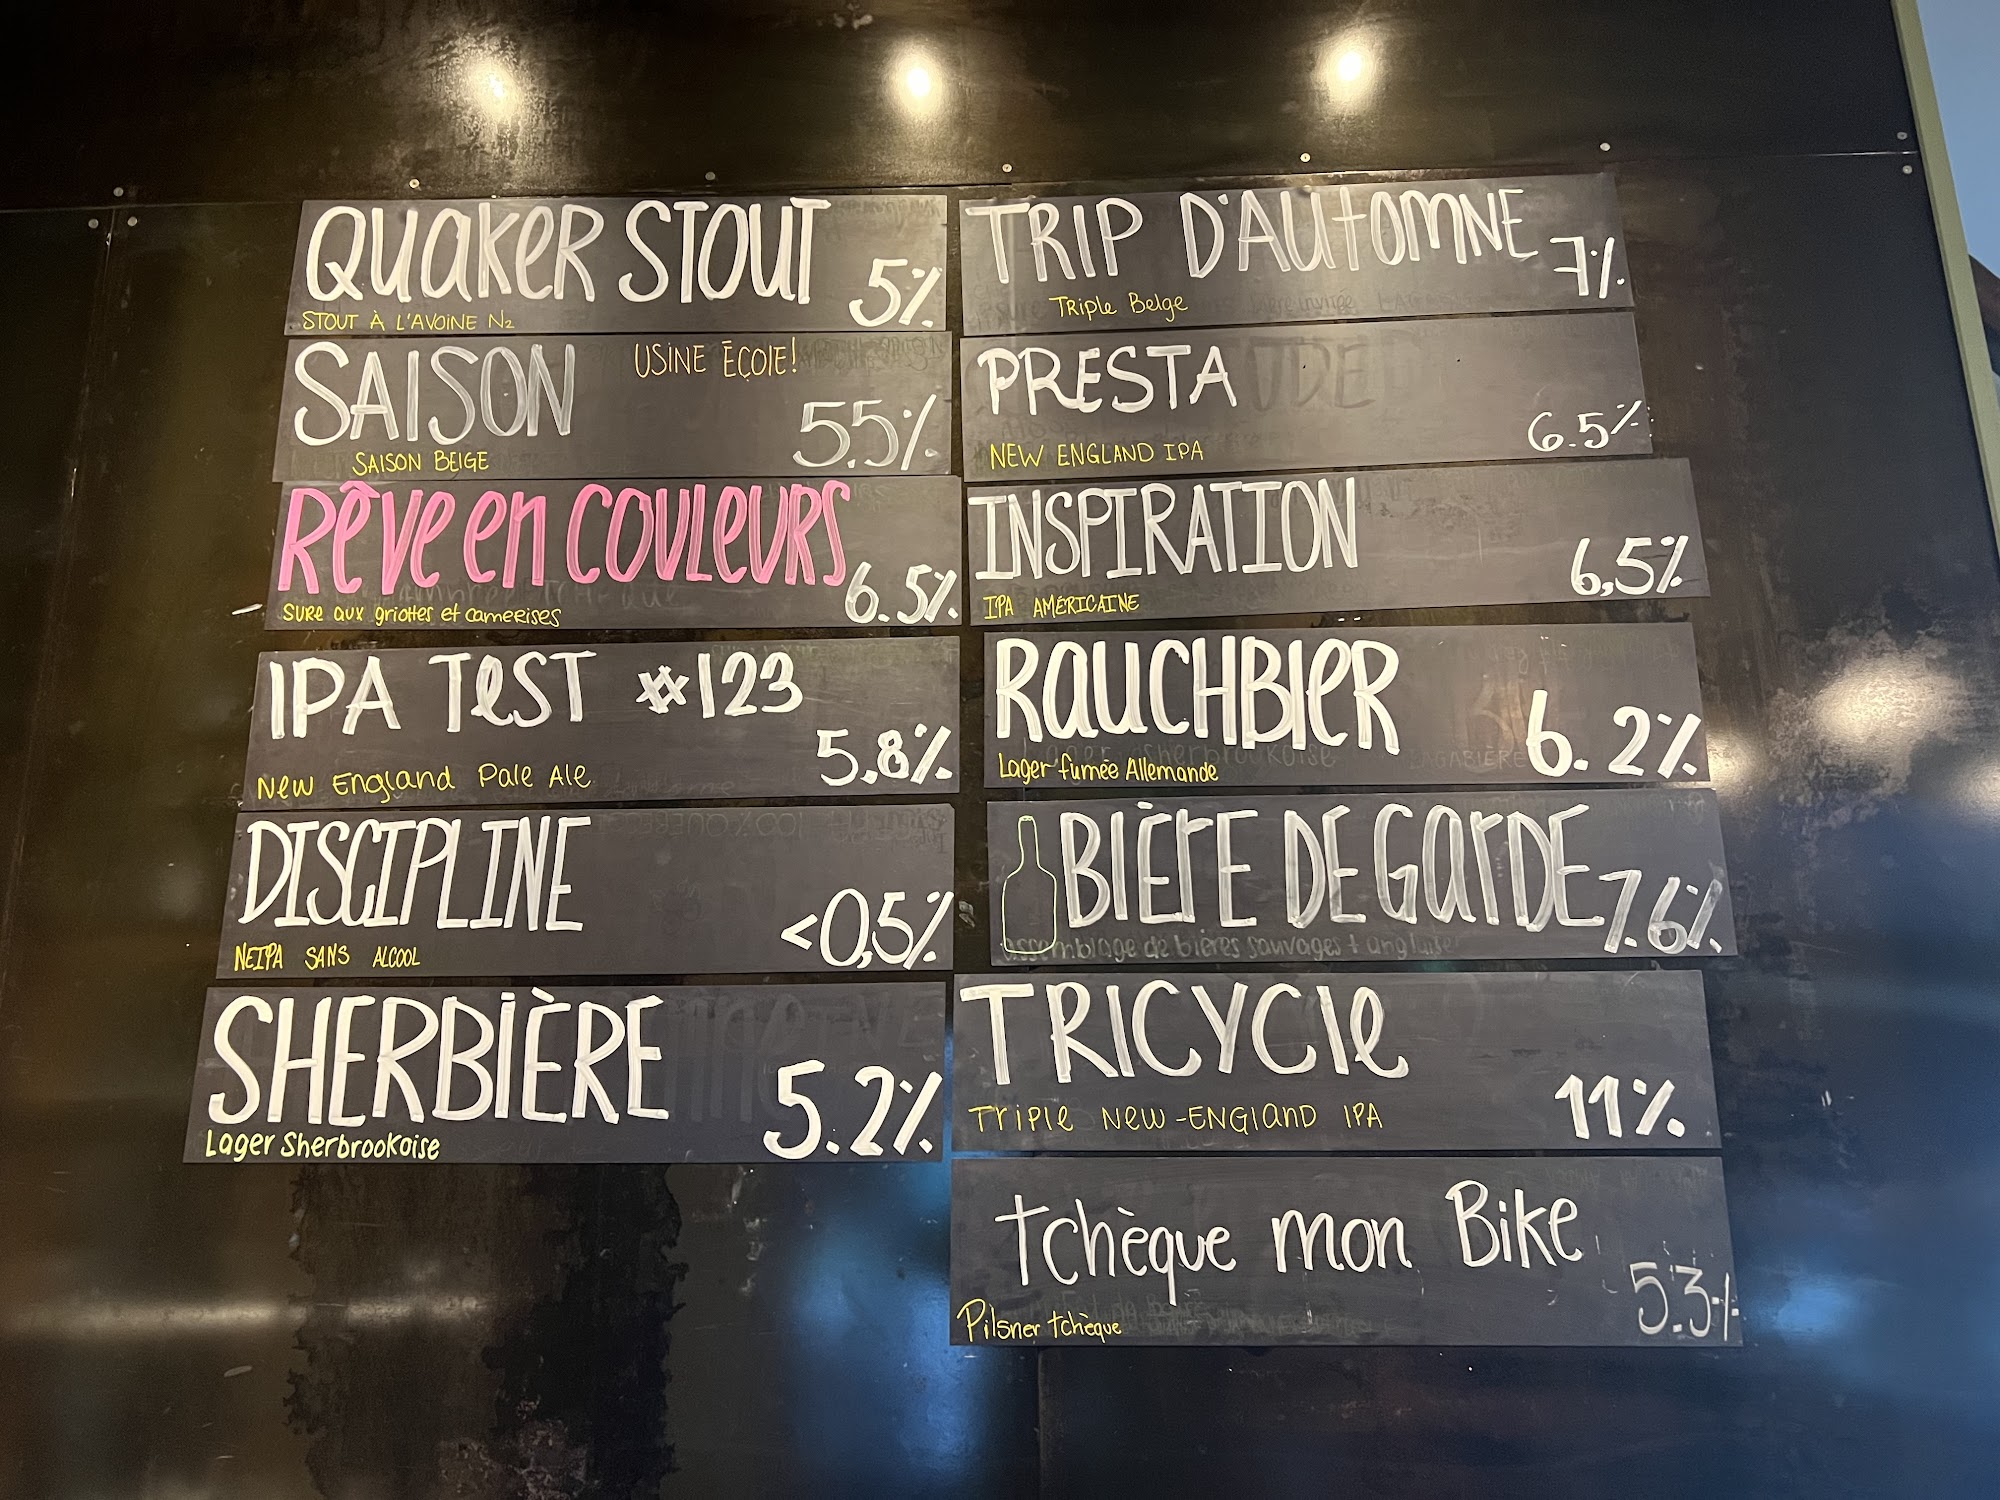 QUAKER STOUT
5%
STOUT À L'AVOINE N2
SAISON
USINE ÉCOLE!
5.5%
SAISON BELGE
RÊVE EN COULEURS
6.5%
SURE aux griottes et camerises
IPA TEST #123
5.8%
New England Pale Ale
DISCIPLINE
<0,5%
NEIPA SANS ALCOOL
SHERBIÈRE
5.2%
Lager Sherbrookoise
TRIP D'AUTOMNE
7%
Triple Belge
PRESTA
6.5%
NEW ENGLAND IPA
INSPIRATION
6,5%
IPA AMÉRICAINE
RAUCHBIER
6.2%
Lager fumée Allemande
BIÈRE DE GARDE
7.6%
assemblage de bières sauvages + anglaise
TRICYCLE
11%
Triple NEW-ENGLAND IPA
tchèque mon Bike
5.3%
Pilsner tchèque